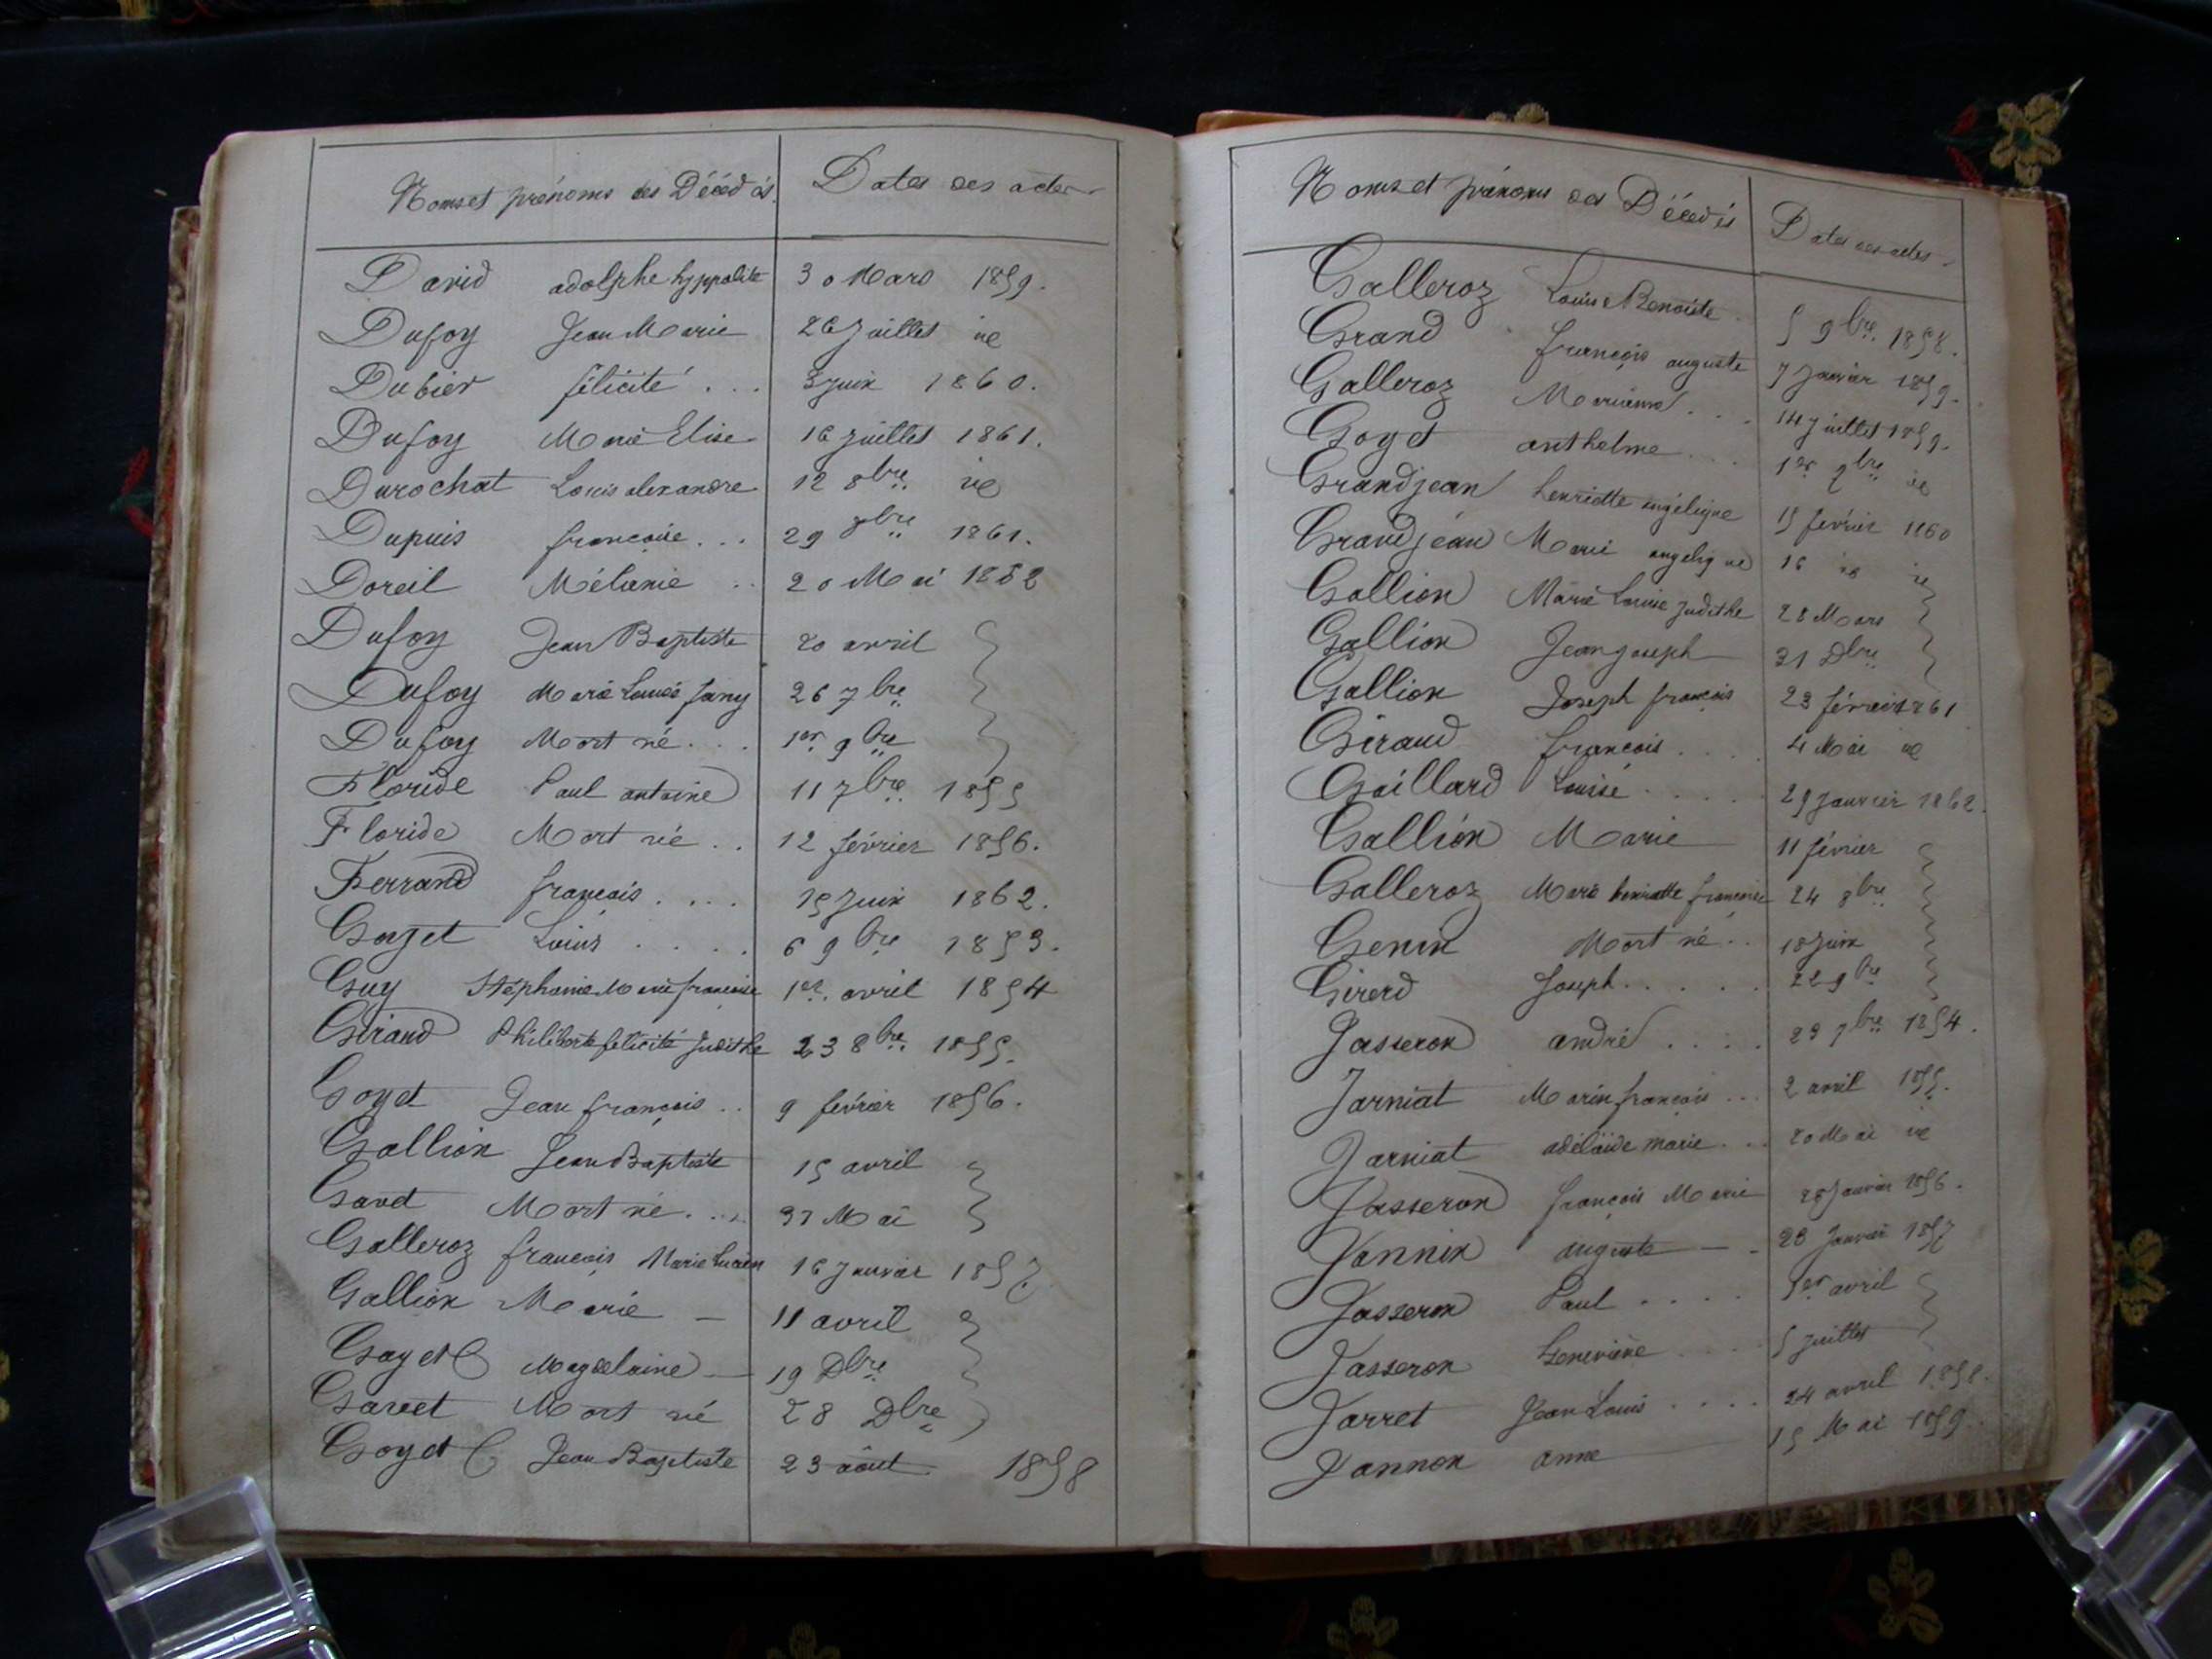 Noms et prénoms des Décédés. Dates des actes
David adolphe hyppolite 30 Mars 1859.
Dufoy Jean Marie 26 Juillet id
Dubier félicité . . . 3 Juin 1860.
Dufoy Marie Elise 16 Juillet 1861.
Durochat Louis alexandre 12 8bre id
Dupuis françoise . . . 29 8bre 1861.
Doreil Mélanie . . 20 Mai 1862
Dufoy Jean Baptiste 20 avril
Dufoy Marie Louise fany 26 7bre
Dufoy Mort né . . . 1er 9bre
Floride Paul antoine 11 7bre 1855
Floride Mort né . . 12 février 1856.
Ferrand françois . . . . 15 Juin 1862.
Goyet Louis . . . . 6 9bre 1853.
Guy Stéphanie Marie françoise 1er avril 1854
Girand Philiberte félicité Judithe 23 8bre 1855.
Goyet Jean françois . . 9 février 1856.
Gallion Jean Baptiste 15 avril
Gavet Mort né . . . 31 Mai
Galleroz françois Marie Lucien 16 Janvier 1857.
Gallion Marie — 11 avril
Goyet Magdelaine — 19 Dbre
Gavet Mort né 28 Dbre
Goyet Jean Baptiste 23 août 1858
Noms et prénoms des Décédés Dates des actes
Galleroz Louise Benoiste 5 9bre 1858.
Grand françois auguste 7 Janvier 1859.
Galleroz . . . 14 Juillet 1859.
Goyet anthelme . . . 1er 9bre id
Grandjean henriette angélique 15 février 1860
Grandjean Marie angelique 16 id id
Gallion Marie Louise Judithe 28 Mars
Gallion Jean Joseph 31 Dbre
Gallion Joseph françois 23 février 1861
Giraud françois . . . . 4 Mai id
Gaillard Louise . . . . . 29 Janvier 1862.
Gallion Marie 11 février
Galleroz Marie henriette françoise 24 8bre
Genin Mort né . . 18 Juin
Girerd Joseph . . . . . 22 9bre
Jasseron andré . . . . 29 7bre 1854.
Jarniat Marin françois . . . 2 avril 1855.
Jarniat adélaïde marie . . . 20 Mai id
Jasseron françois Marie 28 Janvier 1856.
Jannin auguste — - 28 Janvier 1857
Jasseron Paul . . . . 1er avril
Jasseron Geneviève . . . . 5 Juillet
Jarret Jean Louis . . . . 24 avril 1858.
Jannon anne 15 Mai 1859.